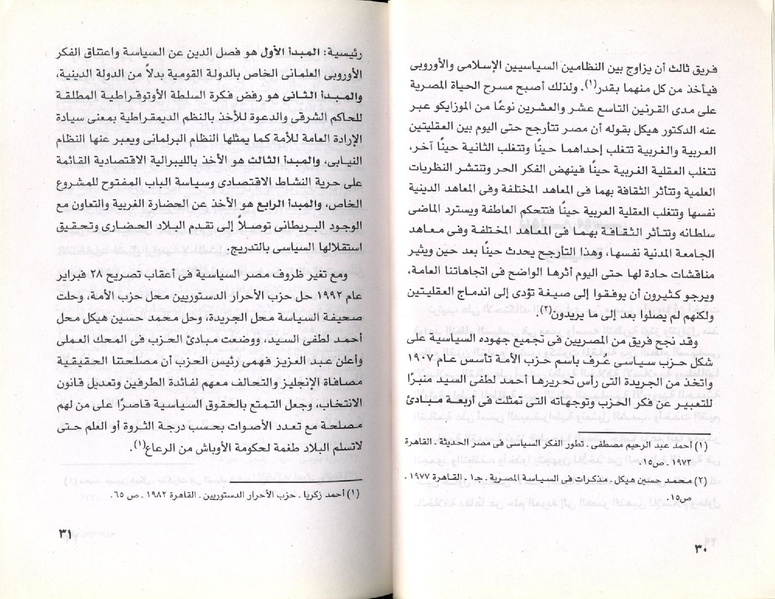 فريق ثالث أن يزاوج بين النظامين السياسيين الإسلامى والأوروبى
فيأخذ من كل منهما بقدر(١). ولذلك أصبح مسرح الحياة المصرية
على مدى القرنين التاسع عشر والعشرين نوعًا من الموزايكو عبر
عنه الدكتور هيكل بقوله أن مصر تتأرجح حتى اليوم بين العقليتين
العربية والغربية تتغلب إحداهما حينًا وتتغلب الثانية حينًا آخر،
تتغلب العقلية الغربية حينًا فينهض الفكر الحر وتنتشر النظريات
العلمية وتتأثر الثقافة بهما فى المعاهد المختلفة وفى المعاهد الدينية
نفسها وتتغلب العقلية العربية حينًا فتتحكم العاطفة ويسترد الماضى
سلطانه وتتأثر الثقافة بهما فى المعاهد المختلفة وفى معاهد
الجامعة المدنية نفسها، وهذا التأرجح يحدث حينًا بعد حين ويثير
مناقشات حادة لها حتى اليوم أثرها الواضح فى اتجاهاتنا العامة،
ويرجو كثيرون أن يوفقوا إلى صيغة تؤدى إلى اندماج العقليتين
ولكنهم لم يصلوا بعد إلى ما يريدون(٢).
وقد نجح فريق من المصريين فى تجميع جهوده السياسية على
شكل حزب سياسى عُرف باسم حزب الأمة تأسس عام ١٩٠٧
واتخذ من الجريدة التى رأس تحريرها أحمد لطفى السيد منبرًا
للتعبير عن فكر الحزب وتوجهاته التى تمثلت فى أربعة مبادئ
(١) أحمد عبد الرحيم مصطفى. تطور الفكر السياسى فى مصر الحديثة. القاهرة
١٩٧٣. ص١٥.
(٢) محمد حسين هيكل. مذكرات فى السياسة المصرية. جـ١. القاهرة ١٩٧٧.
ص١٥.
٣٠
رئيسية: المبدأ الأول هو فصل الدين عن السياسة واعتناق الفكر
الأوروبى العلمانى الخاص بالدولة القومية بدلاً من الدولة الدينية،
والمبدأ الثانى هو رفض فكرة السلطة الأوتوقراطية المطلقة
للحاكم الشرقى والدعوة للأخذ بالنظم الديمقراطية بمعنى سيادة
الإرادة العامة للأمة كما يمثلها النظام البرلمانى ويعبر عنها النظام
النيابى، والمبدأ الثالث هو الأخذ بالليبرالية الاقتصادية القائمة
على حرية النشاط الاقتصادى وسياسة الباب المفتوح للمشروع
الخاص، والمبدأ الرابع هو الأخذ عن الحضارة الغربية والتعاون مع
الوجود البريطانى توصلاً إلى تقدم البلاد الحضارى وتحقيق
استقلالها السياسى بالتدريج.
ومع تغير ظروف مصر السياسية فى أعقاب تصريح ٢٨ فبراير
عام ١٩٩٢ حل حزب الأحرار الدستوريين محل حزب الأمة، وحلت
صحيفة السياسة محل الجريدة، وحل محمد حسين هيكل محل
أحمد لطفى السيد، ووضعت مبادئ الحزب فى المحك العملى
وأعلن عبد العزيز فهمى رئيس الحزب أن مصلحتنا الحقيقية
مصافاة الإنجليز والتحالف معهم لفائدة الطرفين وتعديل قانون
الانتخاب، وجعل التمتع بالحقوق السياسية قاصرًا على من لهم
مصلحة مع تعدد الأصوات بحسب درجة الثروة أو العلم حتى
لاتسلم البلاد طغمة لحكومة الأوباش من الرعاع(١).
(١) أحمد زكريا. حزب الأحرار الدستوريين. القاهرة ١٩٨٢. ص ٦٥.
٣١